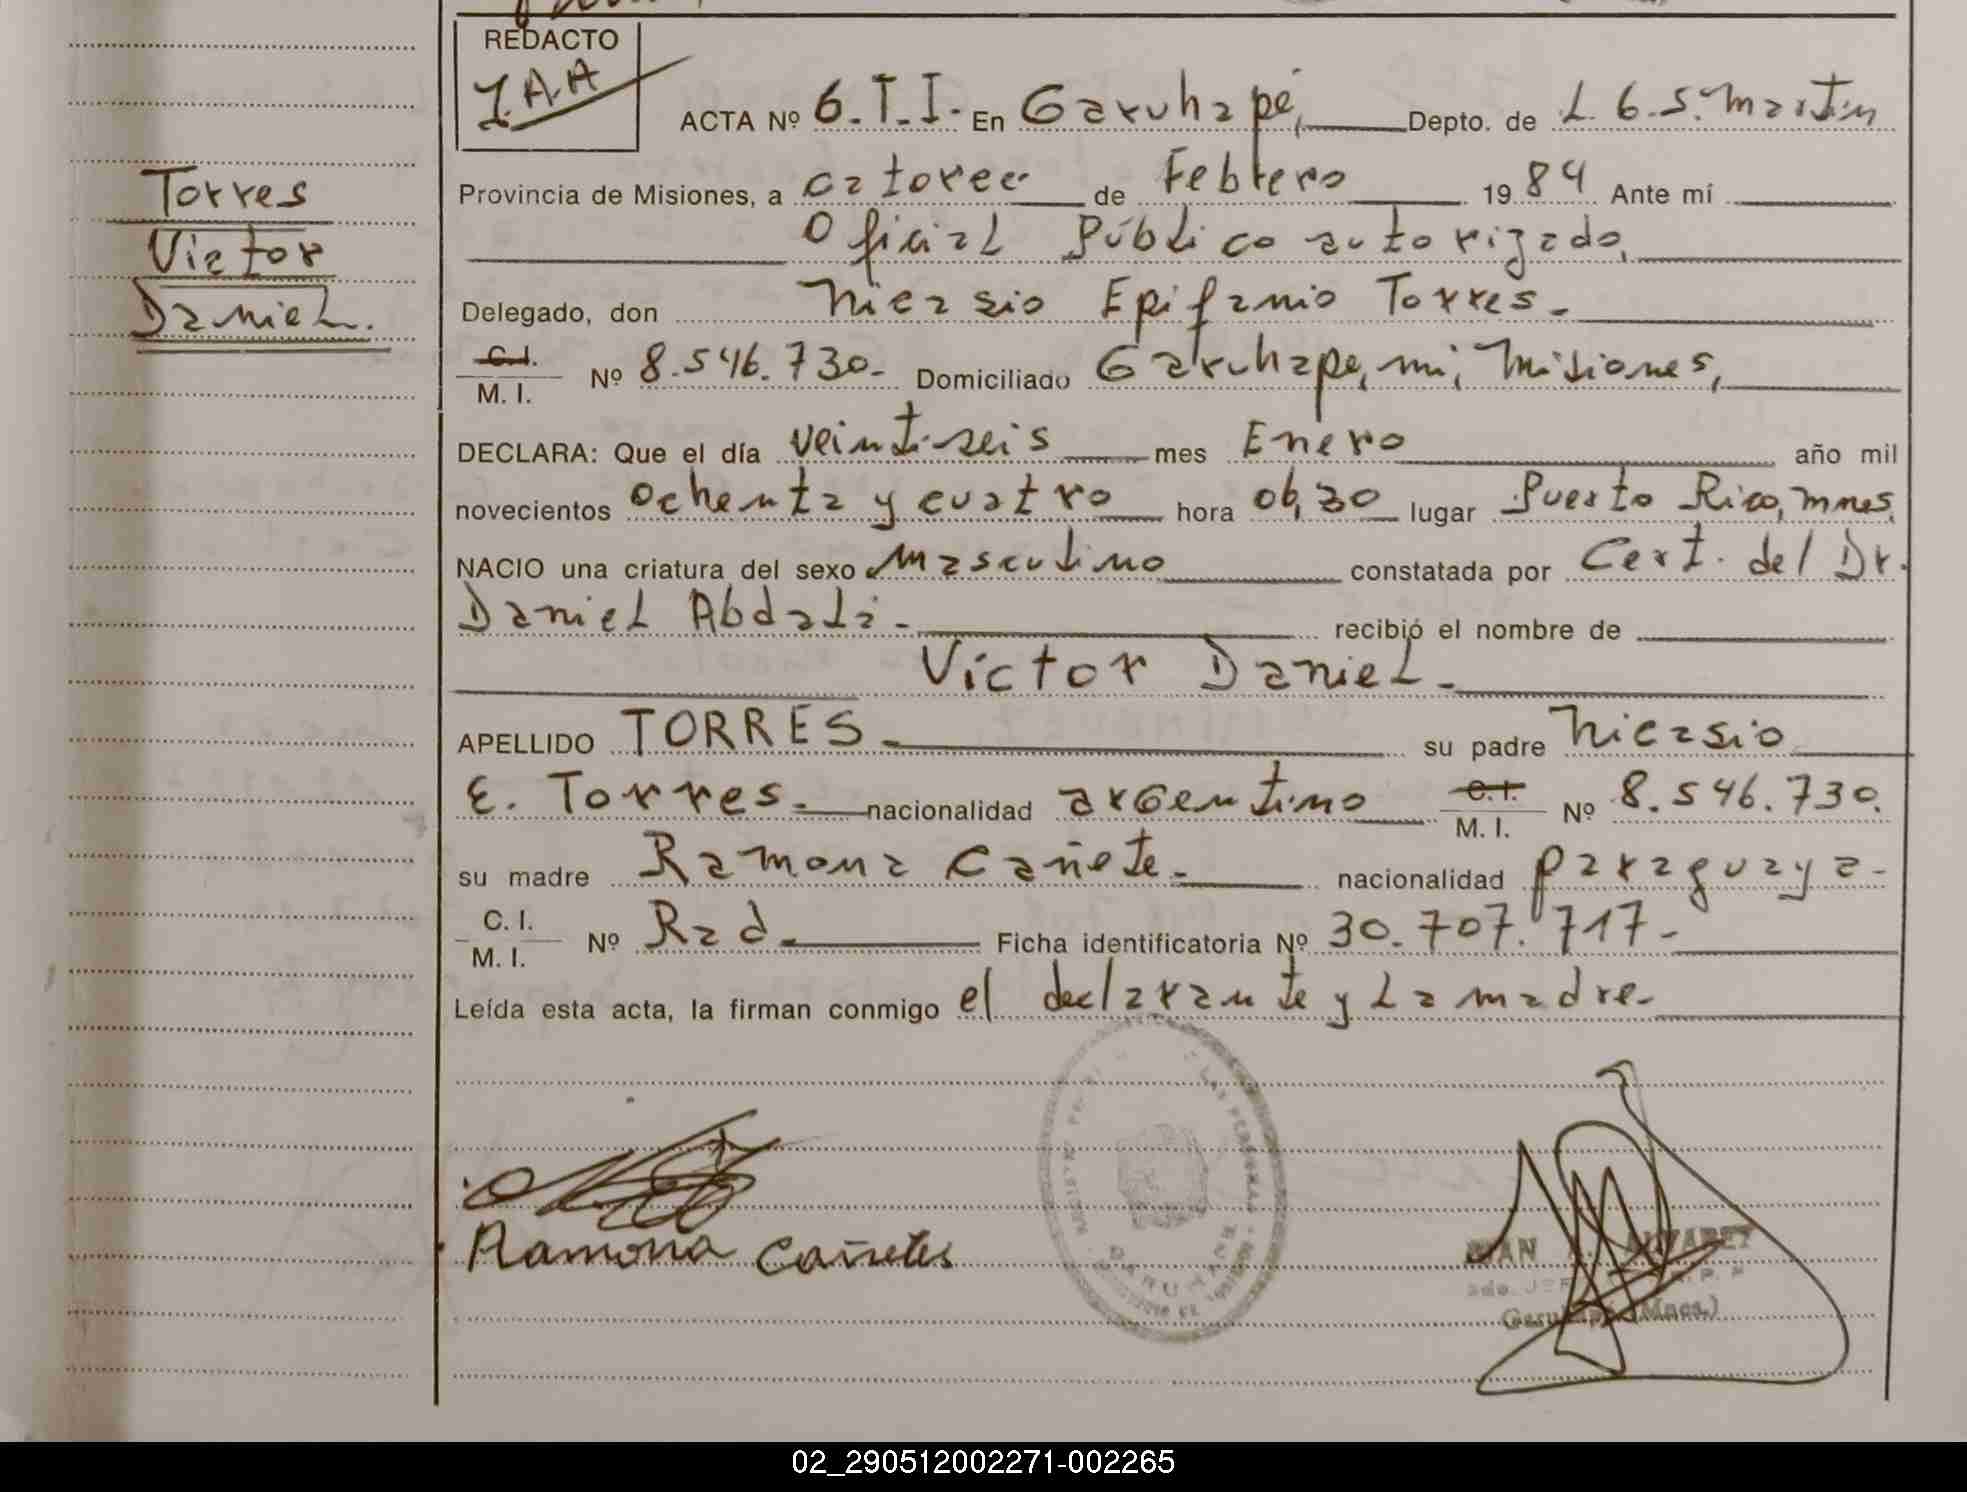 REDACTO
J.A.A
ACTA Nº 6.T.I. En Garuhapé, Depto. de L. G. S. Martin
Torres
Victor
Daniel.
Provincia de Misiones, a catorce de Febrero 1984 Ante mí
Oficial Público autorizado,
Delegado, don Nicasio Epifanio Torres.
C.I. M. I. Nº 8.546.730. Domiciliado Garuhape, mi, Misiones,
DECLARA: Que el día veintiseis mes Enero año mil
novecientos ochenta y cuatro hora 06,30 lugar Puerto Rico, Mnes,
NACIO una criatura del sexo masculino constatada por Cert. del Dr.
Daniel Abdala. recibió el nombre de
Víctor Daniel.
APELLIDO TORRES. su padre Nicasio
E. Torres. nacionalidad argentino C.I. M. I. Nº 8.546.730.
su madre Ramona Cañete. nacionalidad paraguaya.
C. I. M. I. Nº Rad. Ficha identificatoria Nº 30.707.717.
Leída esta acta, la firman conmigo el declarante y la madre.
Ramona Cañetes
LAS PERSONAS
GARUHAPE
JUAN A. ALVAREZ
Garuhapé (Mnes.)
02_290512002271-002265